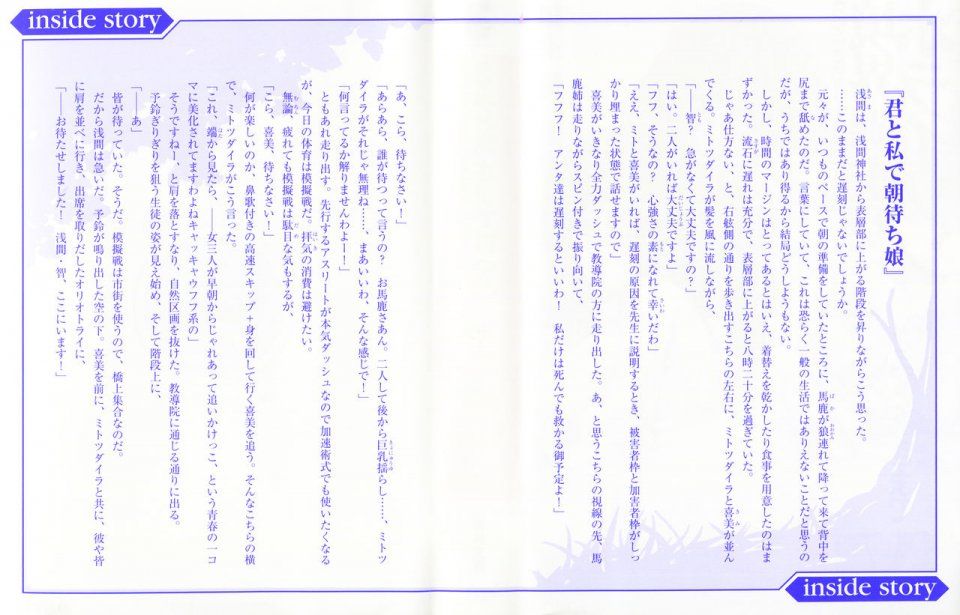 inside story
『君と私で朝待ち娘』
浅間は、浅間神社から表層部に上がる階段を昇りながらこう思った。
……このままだと遅刻じゃないでしょうか。
元々が、いつものペースで朝の準備をしていたところに、馬鹿が狼連れて降って来て背中を
尻まで舐めたのだ。言葉にしていて、これは恐らく一般の生活ではありえないことだと思うの
だが、うちではあり得るから結局どうしようもない。
しかし、時間のマージンはとってあるとはいえ、着替えを乾かしたり食事を用意したのはま
ずかった。流石に遅れは充分で、表層部に上がると八時二十分を過ぎていた。
じゃあ仕方ない、と、右舷側の通りを歩き出すこちらの左右に、ミトツダイラと喜美が並ん
でくる。ミトツダイラが髪を風に流しながら、
「――智？　急がなくて大丈夫ですの？」
「はい。二人がいれば大丈夫ですよ」
「フフ、そうなの？　心強さの素になれて幸いだわ」
「ええ、ミトと喜美がいれば、遅刻の原因を先生に説明するとき、被害者枠と加害者枠がしっ
かり埋まった状態で話せますので」
喜美がいきなり全力ダッシュで教導院の方に走り出した。あ、と思うこちらの視線の先、馬
鹿姉は走りながらスピン付きで振り向いて、
「フフフ！　アンタ達は遅刻するといいわ！　私だけは死んでも救かる御予定よ！」
「あ、こら、待ちなさい！」
「あらあら、誰が待つって言うの？　お馬鹿さあん。二人して後から巨乳揺らし……、ミトツ
ダイラがそれじゃ無理ね……、まあいいわ、そんな感じで！」
「何言ってるか解りませんわよー！」
ともあれ走り出す。先行するアスリートが本気ダッシュなので加速術式でも使いたくなる
が、今日の体育は模擬戦だ。拝気の消費は避けたい。
無論、疲れても模擬戦は駄目な気もするが、
「こら、喜美、待ちなさい！」
何が楽しいのか、鼻歌付きの高速スキップ＋身を回して行く喜美を追う。そんなこちらの横
で、ミトツダイラがこう言った。
「これ、端から見たら、――女三人が早朝からじゃれあって追いかけっこ、という青春の一コ
マに美化されてますわよねキャッキャウフフ系の」
そうですねー、と肩を落とすなり、自然区画を抜けた。教導院に通じる通りに出る。
予鈴ぎりぎりを狙う生徒の姿が見え始め、そして階段上に、
「――あ」
皆が待っていた。そうだ。模擬戦は市街を使うので、橋上集合なのだ。
だから浅間は急いだ。予鈴が鳴り出した空の下。喜美を前に、ミトツダイラと共に、彼や皆
に肩を並べに行き、出席を取りだしたオリオトライに、
「――お待たせしました！　浅間・智、ここにいます！」
inside story